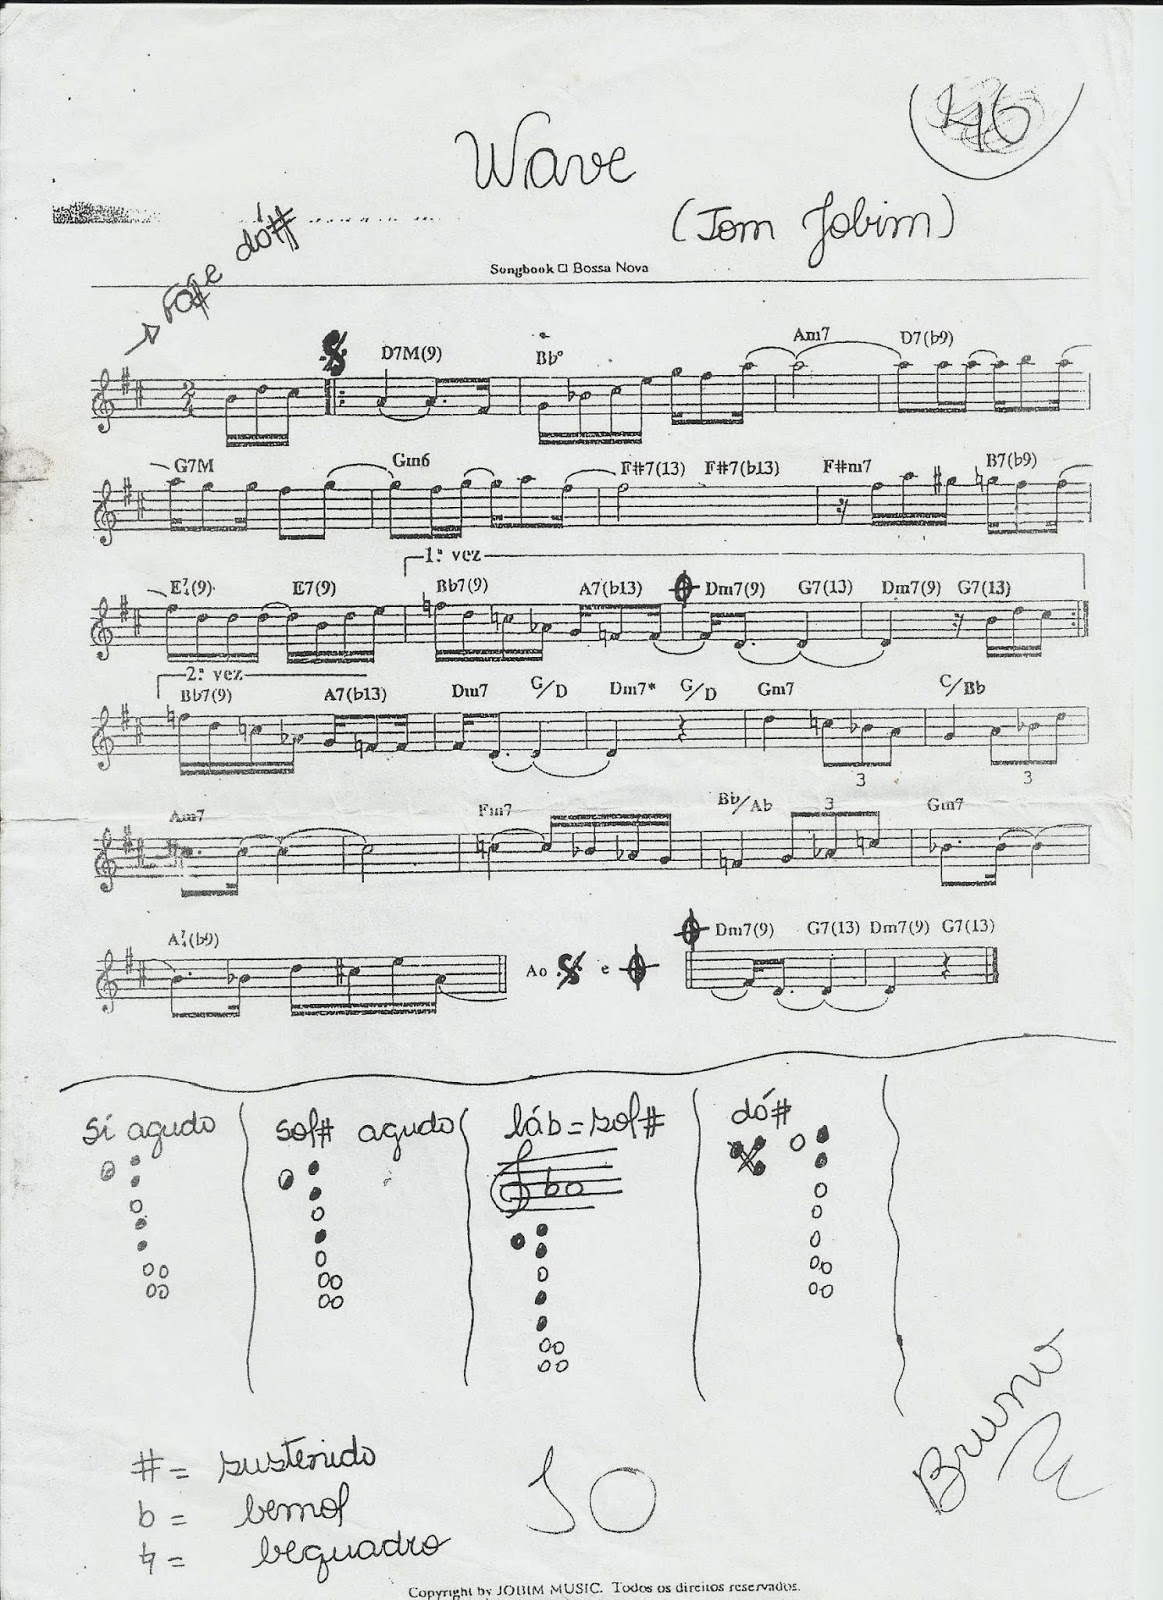 46
Wave
(Tom Jobim)
Songbook □ Bossa Nova
→ Fá# e dó#
D7M(9) Bb° Am7 D7(b9)
2
4
G7M Gm6 F#7(13) F#7(b13) F#m7 B7(b9)
1.ª vez
E7/4(9) E7(9) Bb7(9) A7(b13) Dm7(9) G7(13) Dm7(9) G7(13)
2.ª vez
Bb7(9) A7(b13) Dm7 G/D Dm7* G/D Gm7 C/Bb
3 3
Am7 Fm7 Bb/Ab 3 Gm7
A7/4(b9) Ao e Dm7(9) G7(13) Dm7(9) G7(13)
si agudo sol# agudo láb=sol# dó#
# = sustenido
b = bemol
♮ = bequadro
Bruno
Copyright by JOBIM MUSIC. Todos os direitos reservados.